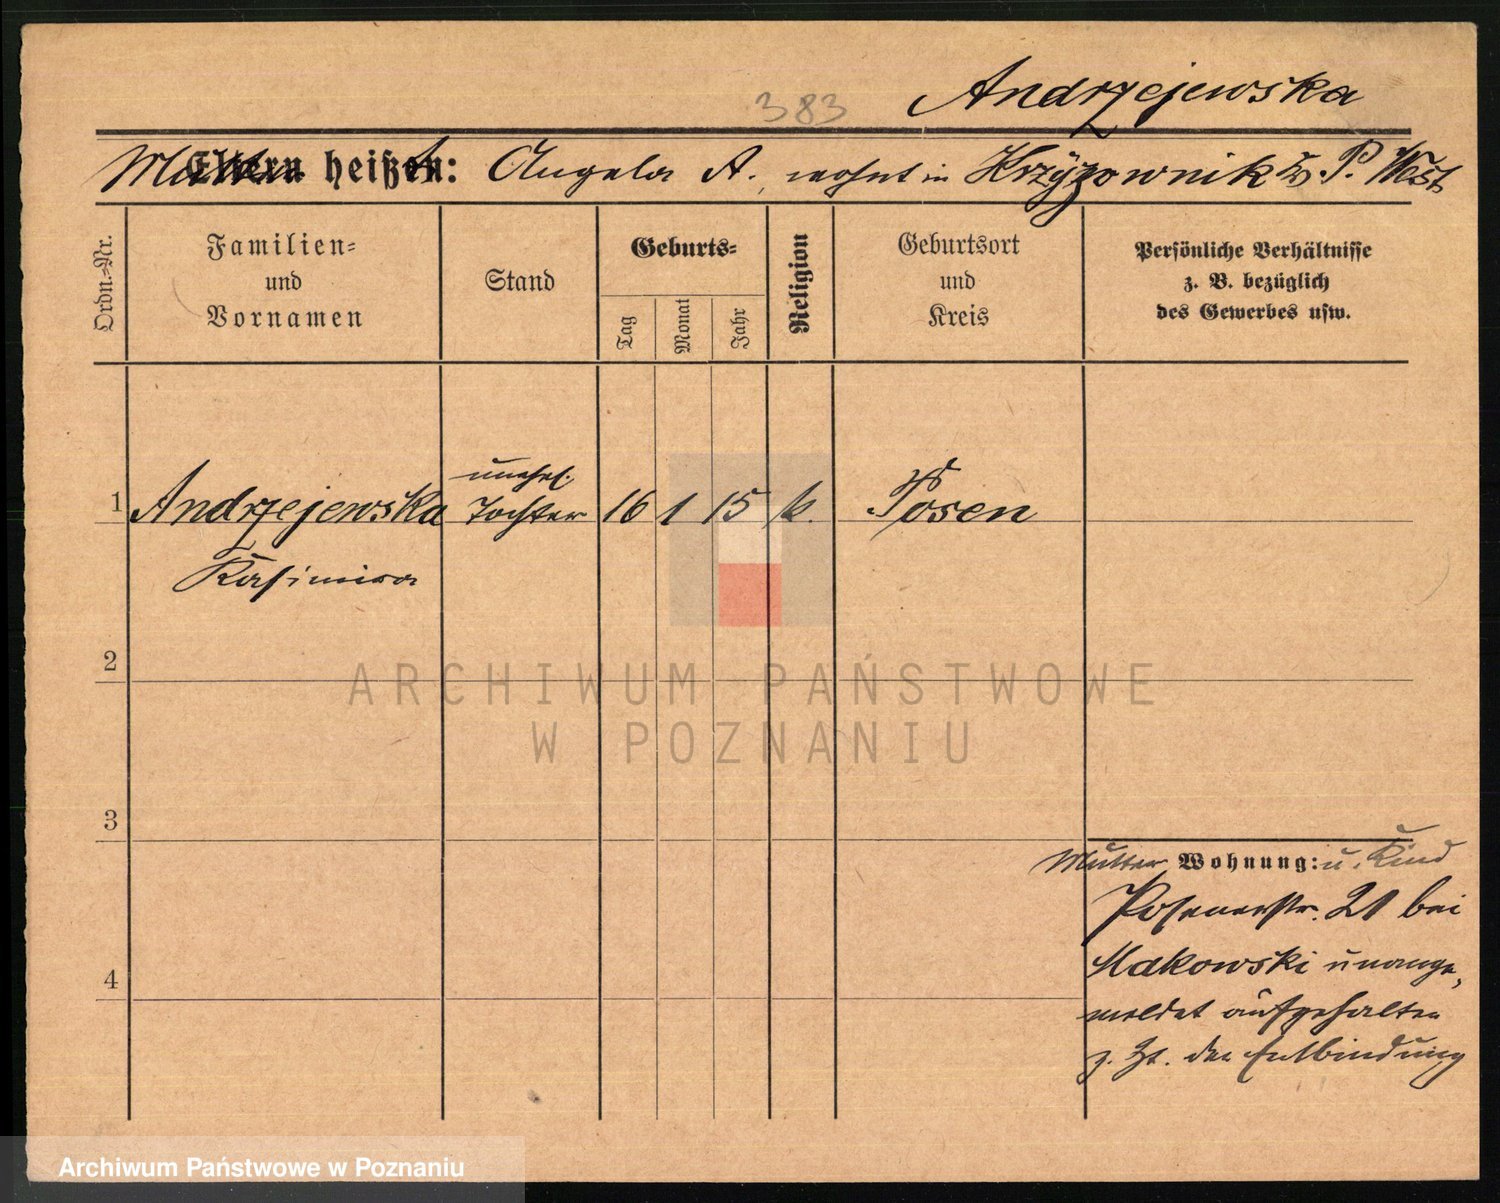 383
Andrzejewska
Mutter heißt: Angela A., wohnt in Krzyżownik Kr. P. West
Ordn.-Nr.
Familien-
und
Vornamen
Stand
Geburts-
Tag
Monat
Jahr
Religion
Geburtsort
und
Kreis
Persönliche Verhältnisse
z. B. bezüglich
des Gewerbes usw.
unehel.
1 Andrzejewska Tochter 16 1 15 k. Posen
Kasimira
2
3
4
Mutter Wohnung: u. Kind
Posenerstr. 21 bei
Makowski unange-
meldet aufgehalten
z. Zt. der Entbindung
ARCHIWUM PAŃSTWOWE
W POZNANIU
Archiwum Państwowe w Poznaniu